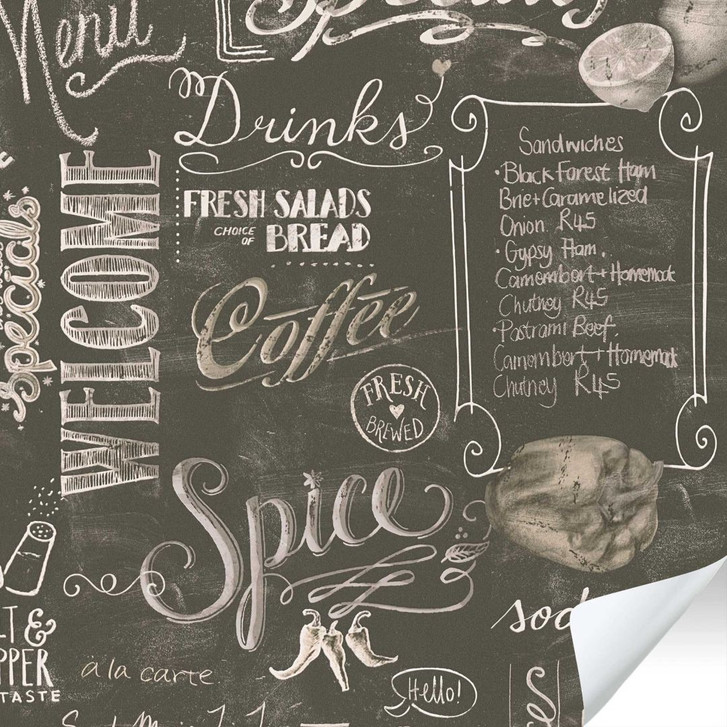 Menu
Drinks
WELCOME
specials
FRESH SALADS
CHOICE OF BREAD
Coffee
FRESH BREWED
Sandwiches
• Black Forest Ham
Brie + Caramelized
Onion R45
• Gypsy Ham,
Camembert + Homemade
Chutney R45
• Pastrami Beef,
Camembert + Homemade
Chutney R45
Spice
LT &
PPER
TASTE
à la carte
Hello!
sod